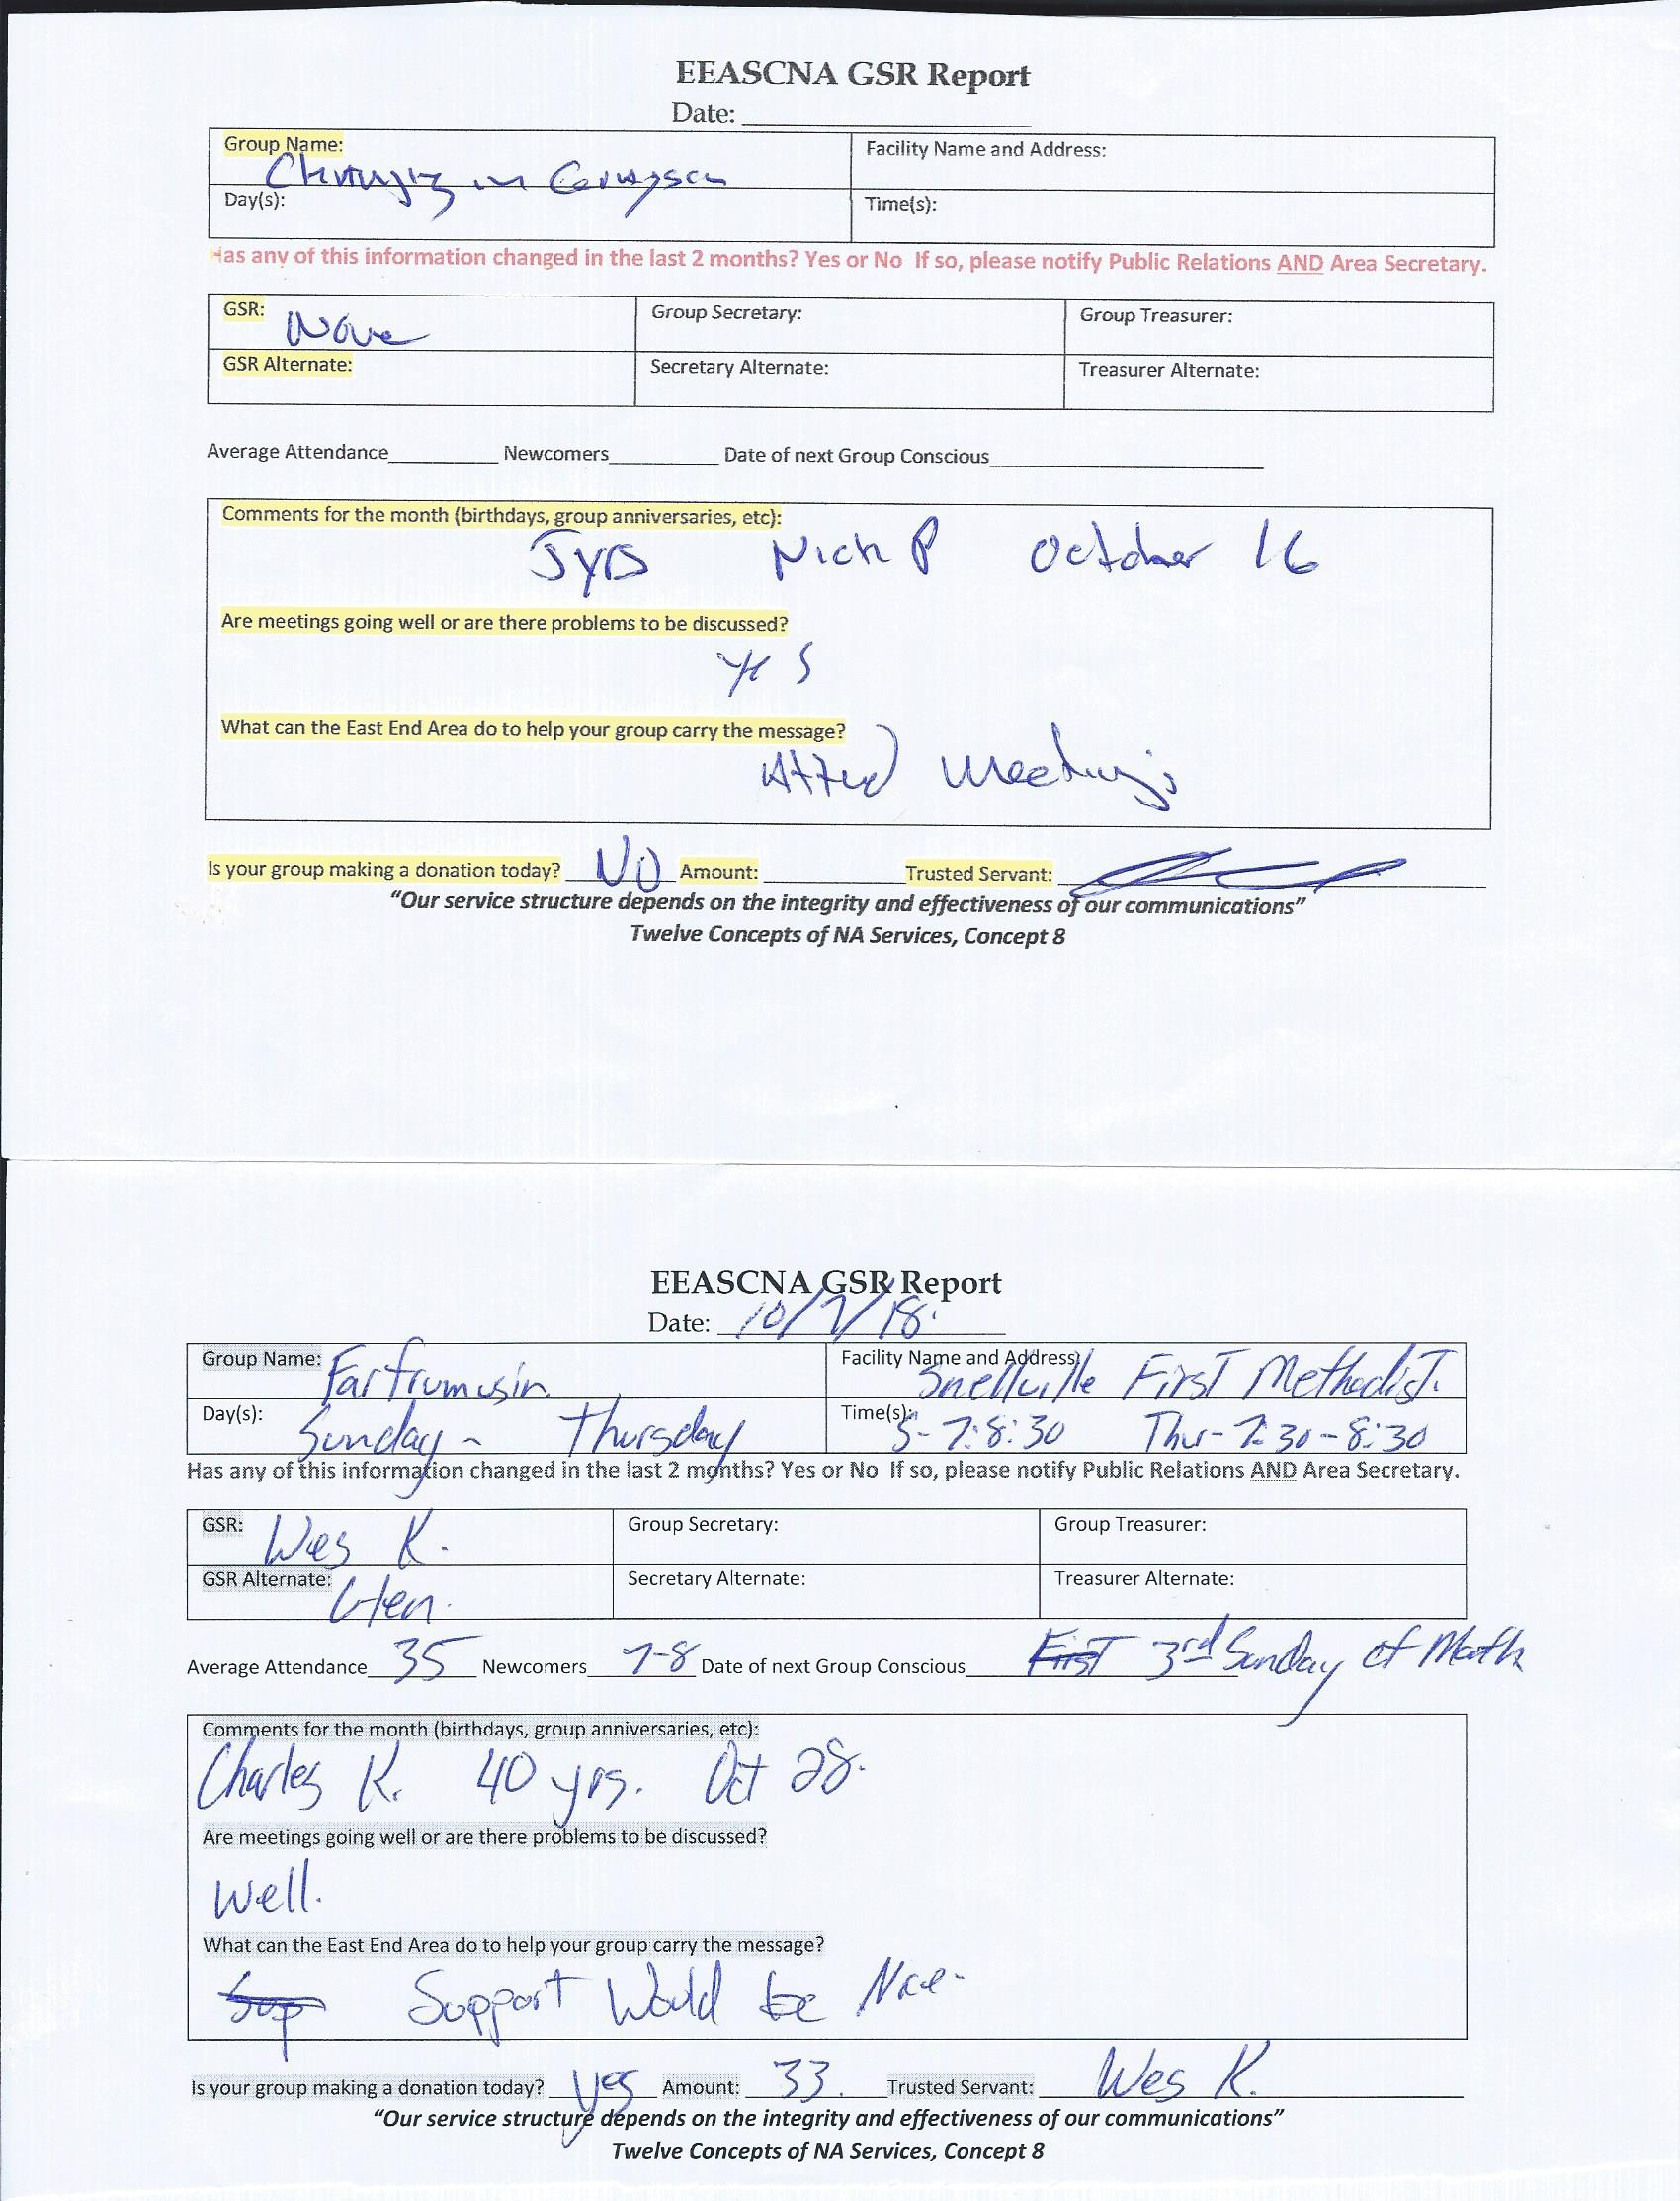 EEASCNA GSR Report
Date:
Group Name:
Facility Name and Address:
Changing in Grayson
Day(s):
Time(s):
Has any of this information changed in the last 2 months? Yes or No If so, please notify Public Relations AND Area Secretary.
GSR: None
Group Secretary:
Group Treasurer:
GSR Alternate:
Secretary Alternate:
Treasurer Alternate:
Average Attendance Newcomers Date of next Group Conscious
Comments for the month (birthdays, group anniversaries, etc):
yrs Nick P October 16
Are meetings going well or are there problems to be discussed?
Yes
What can the East End Area do to help your group carry the message?
Attend Meetings
Is your group making a donation today? NO Amount: Trusted Servant:
"Our service structure depends on the integrity and effectiveness of our communications"
Twelve Concepts of NA Services, Concept 8
EEASCNA GSR Report
Date: 10/7/18
Group Name: Farfrumusin
Facility Name and Address: Snellville First Methodist.
Day(s): Sunday - Thursday
Time(s): S- 7:8:30 Thur- 7:30-8:30
Has any of this information changed in the last 2 months? Yes or No If so, please notify Public Relations AND Area Secretary.
GSR: Wes K.
Group Secretary:
Group Treasurer:
GSR Alternate: Glen.
Secretary Alternate:
Treasurer Alternate:
Average Attendance 35 Newcomers 7-8 Date of next Group Conscious First 3rd Sunday of Moth
Comments for the month (birthdays, group anniversaries, etc):
Charles K. 40 yrs. Oct 28.
Are meetings going well or are there problems to be discussed?
Well.
What can the East End Area do to help your group carry the message?
Sup Support Would be Nice.
Is your group making a donation today? yes Amount: 33. Trusted Servant: Wes K.
"Our service structure depends on the integrity and effectiveness of our communications"
Twelve Concepts of NA Services, Concept 8